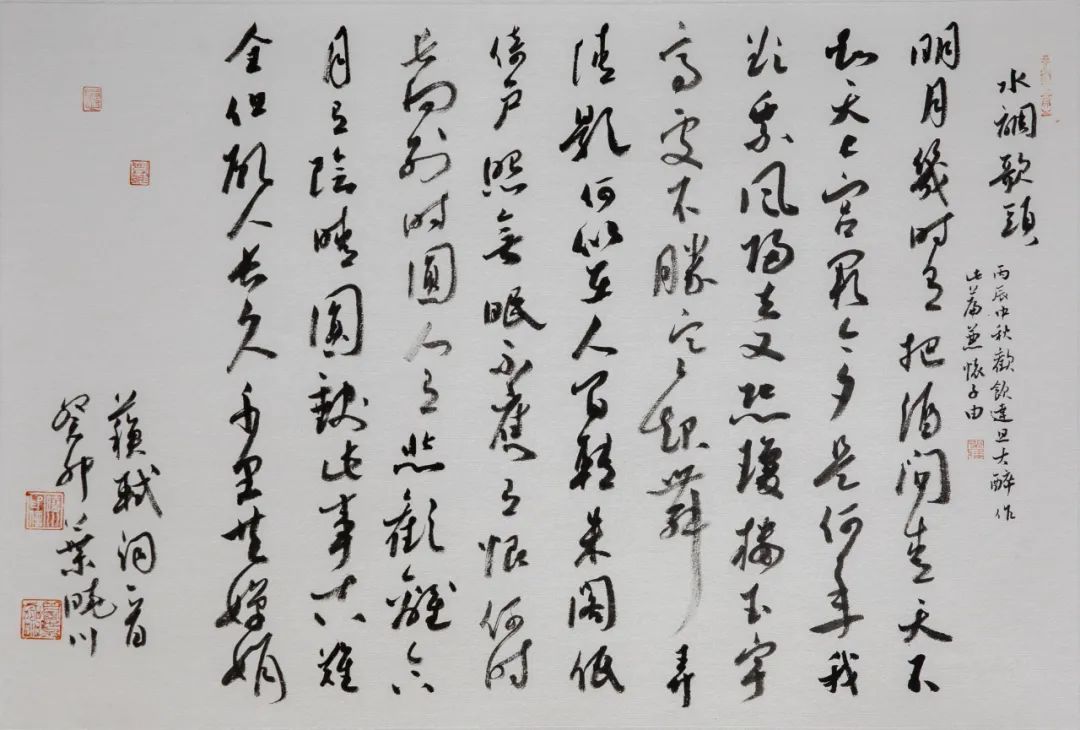 水調歌頭
丙辰中秋歡飲達旦大醉作
此篇兼懷子由
明月幾時有把酒問青天不
知天上宮闕今夕是何年我
欲乘風歸去又恐瓊樓玉宇
高處不勝寒起舞弄
清影何似在人間轉朱閣低
倚戶照無眠不應有恨何時
長向別時圓人有悲歡離合
月有陰晴圓缺此事古難
全但願人長久千里共嬋娟
蘇軾詞一首
癸卯葉曉川